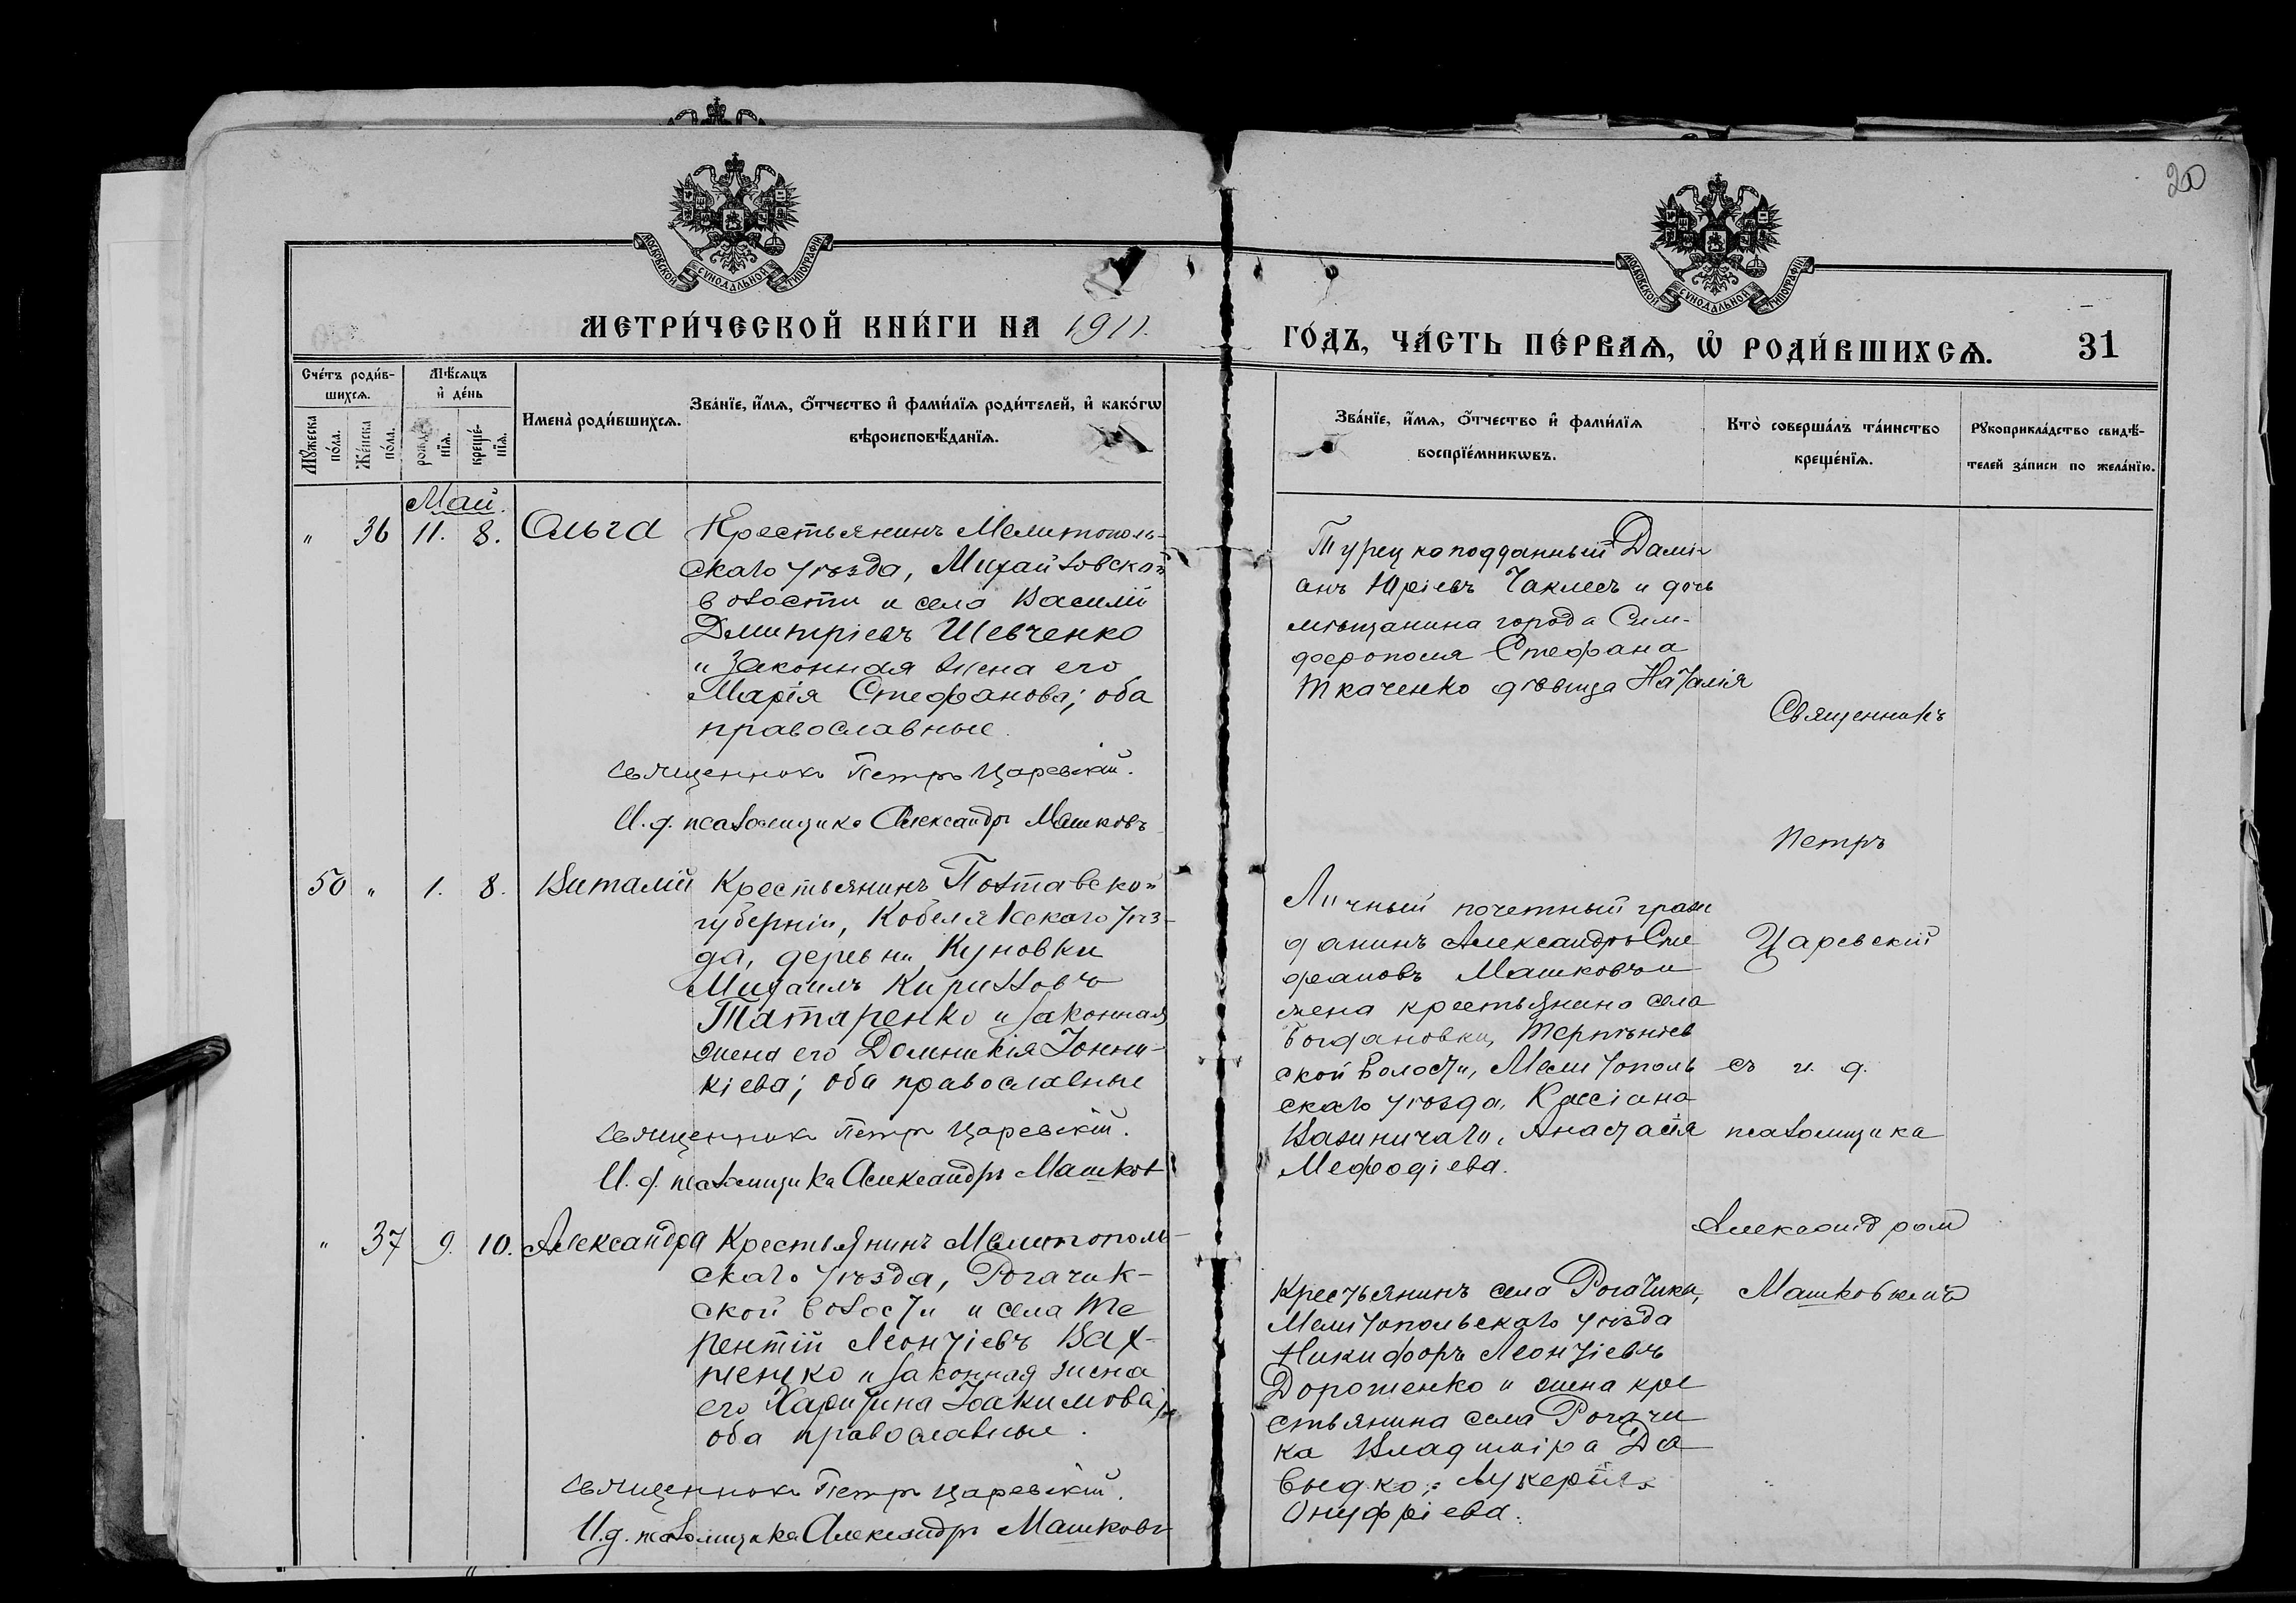 20
МОСКОВСКОЙ СУНОДАЛЬНОЙ ТИПОГРАФІИ
МОСКОВСКОЙ СУНОДАЛЬНОЙ ТИПОГРАФІИ
МЕТРИ́ЧЕСКОЙ КНИ́ГИ НА 1911.
ГО́ДЪ, ЧА́СТЬ ПЕ́РВАѦ, Ѡ҆ РОДИ́ВШИХСѦ. 31
Сче́тъ роди́в-
шихсѧ.
Мѣ́сѧцъ
и҆ де́нь
Мꙋ́жеска
по́ла.
Же́нска
по́ла.
рожде-
нїѧ.
креще́-
нїѧ.
Имена̀ роди́вшихсѧ.
Зва́нїе, и҆́мѧ, ѻ҆́тчество и҆ фами́лїѧ роди́телей, и҆ како́гѡ
вѣроисповѣ́данїѧ.
Зва́нїе, и҆́мѧ, ѻ҆́тчество и҆ фами́лїѧ
воспрїе́мникѡвъ.
Кто̀ соверша́лъ та́инство
креще́нїѧ.
Рꙋкоприкла́дство свидѣ́-
телей за́писи по жела́нїю.
Май.
" 36 11. 8. Ольга
Крестьянинъ Мелитополь-
скаго уѣзда, Михайловской
волости и села Василій
Дмитріевъ Шевченко
и законная жена его
Марія Стефанова; оба
православные.
Священникъ Петръ Царевскій.
И. д. псаломщика Александръ Машковъ
Турецкоподданный Дамі-
анъ Юріевъ Чаклеѣ и дочь
мѣщанина города Сим-
ферополя Стефана
Ткаченко дѣвица Наталія
50 " 1. 8. Виталій
Крестьянинъ Полтавской
губерніи, Кобелякскаго уѣз-
да, деревни Куновки
Михаилъ Кирилловъ
Татаренко и законная
жена его Домникія Іонни-
кіева; оба православные
Священникъ Петръ Царевскій.
И. д. псаломщика Александръ Машков
Личный почетный граж
данинъ Александръ Сте
фановъ Машковъ и
жена крестьянина села
Богдановки, Терпѣніев
ской волости, Мелитополь
скаго уѣзда,
Анастасія
Мефодіева.
" 37 9. 10. Александра
Крестьянинъ Мелитополь-
скаго уѣзда, Рогачик-
ской волости и села Те
рентій Леонтіевъ
и законная жена
его Харитина Іоакимова;
оба православные.
Священникъ Петръ Царевскій.
И. д. псаломщика Александръ Машковъ
Крестьянинъ села Рогачика,
Мелитопольскаго уѣзда
Никифоръ Леонтіевъ
Дорошенко и жена кре
стьянина села Рогачи
ка Владиміра Да
выдко; Лукерія
Онуфріева.
Священникъ
Петръ
Царевскій
съ и. д.
псаломщика
Александром
Машковымъ